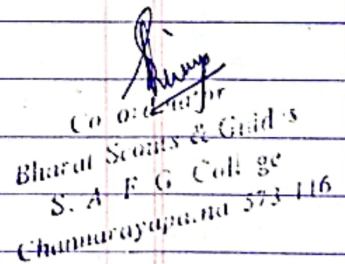 Co-ordinator
Bharat Scouts & Guides
S. A F G College
Channarayapatna 573 116